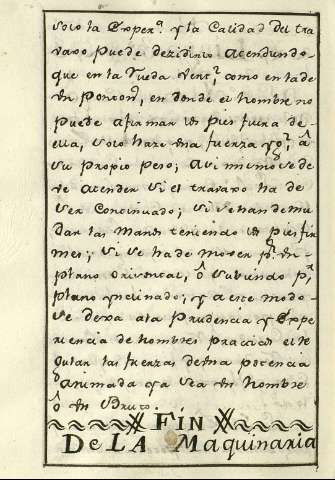 Solo la Exper.ª y la Calidad del tra
vaxo puede dezidirlo atendiendo
que en la Rueda Vert.l como en la de
un Ponton, en donde el hombre no
puede afirmar los pies fuera de
ella, solo hace una fuerza yg.l â
su propio peso; Asi mismo se de
ve atender si el travaxo ha de
ser Continuado; si se han de mu
dar las Manos teniendo los pies fir
mes; si se ha de mover p.r un
plano orizontal, ô subiendo p.r
plano ynclinado; y a este modo
se dexa a la Prudencia y Expe
riencia de hombres practicos el re
gular las fuerzas de una potencia
animada ya sea un hombre
ô un Bruto.
FIN
De LA Maquinaria